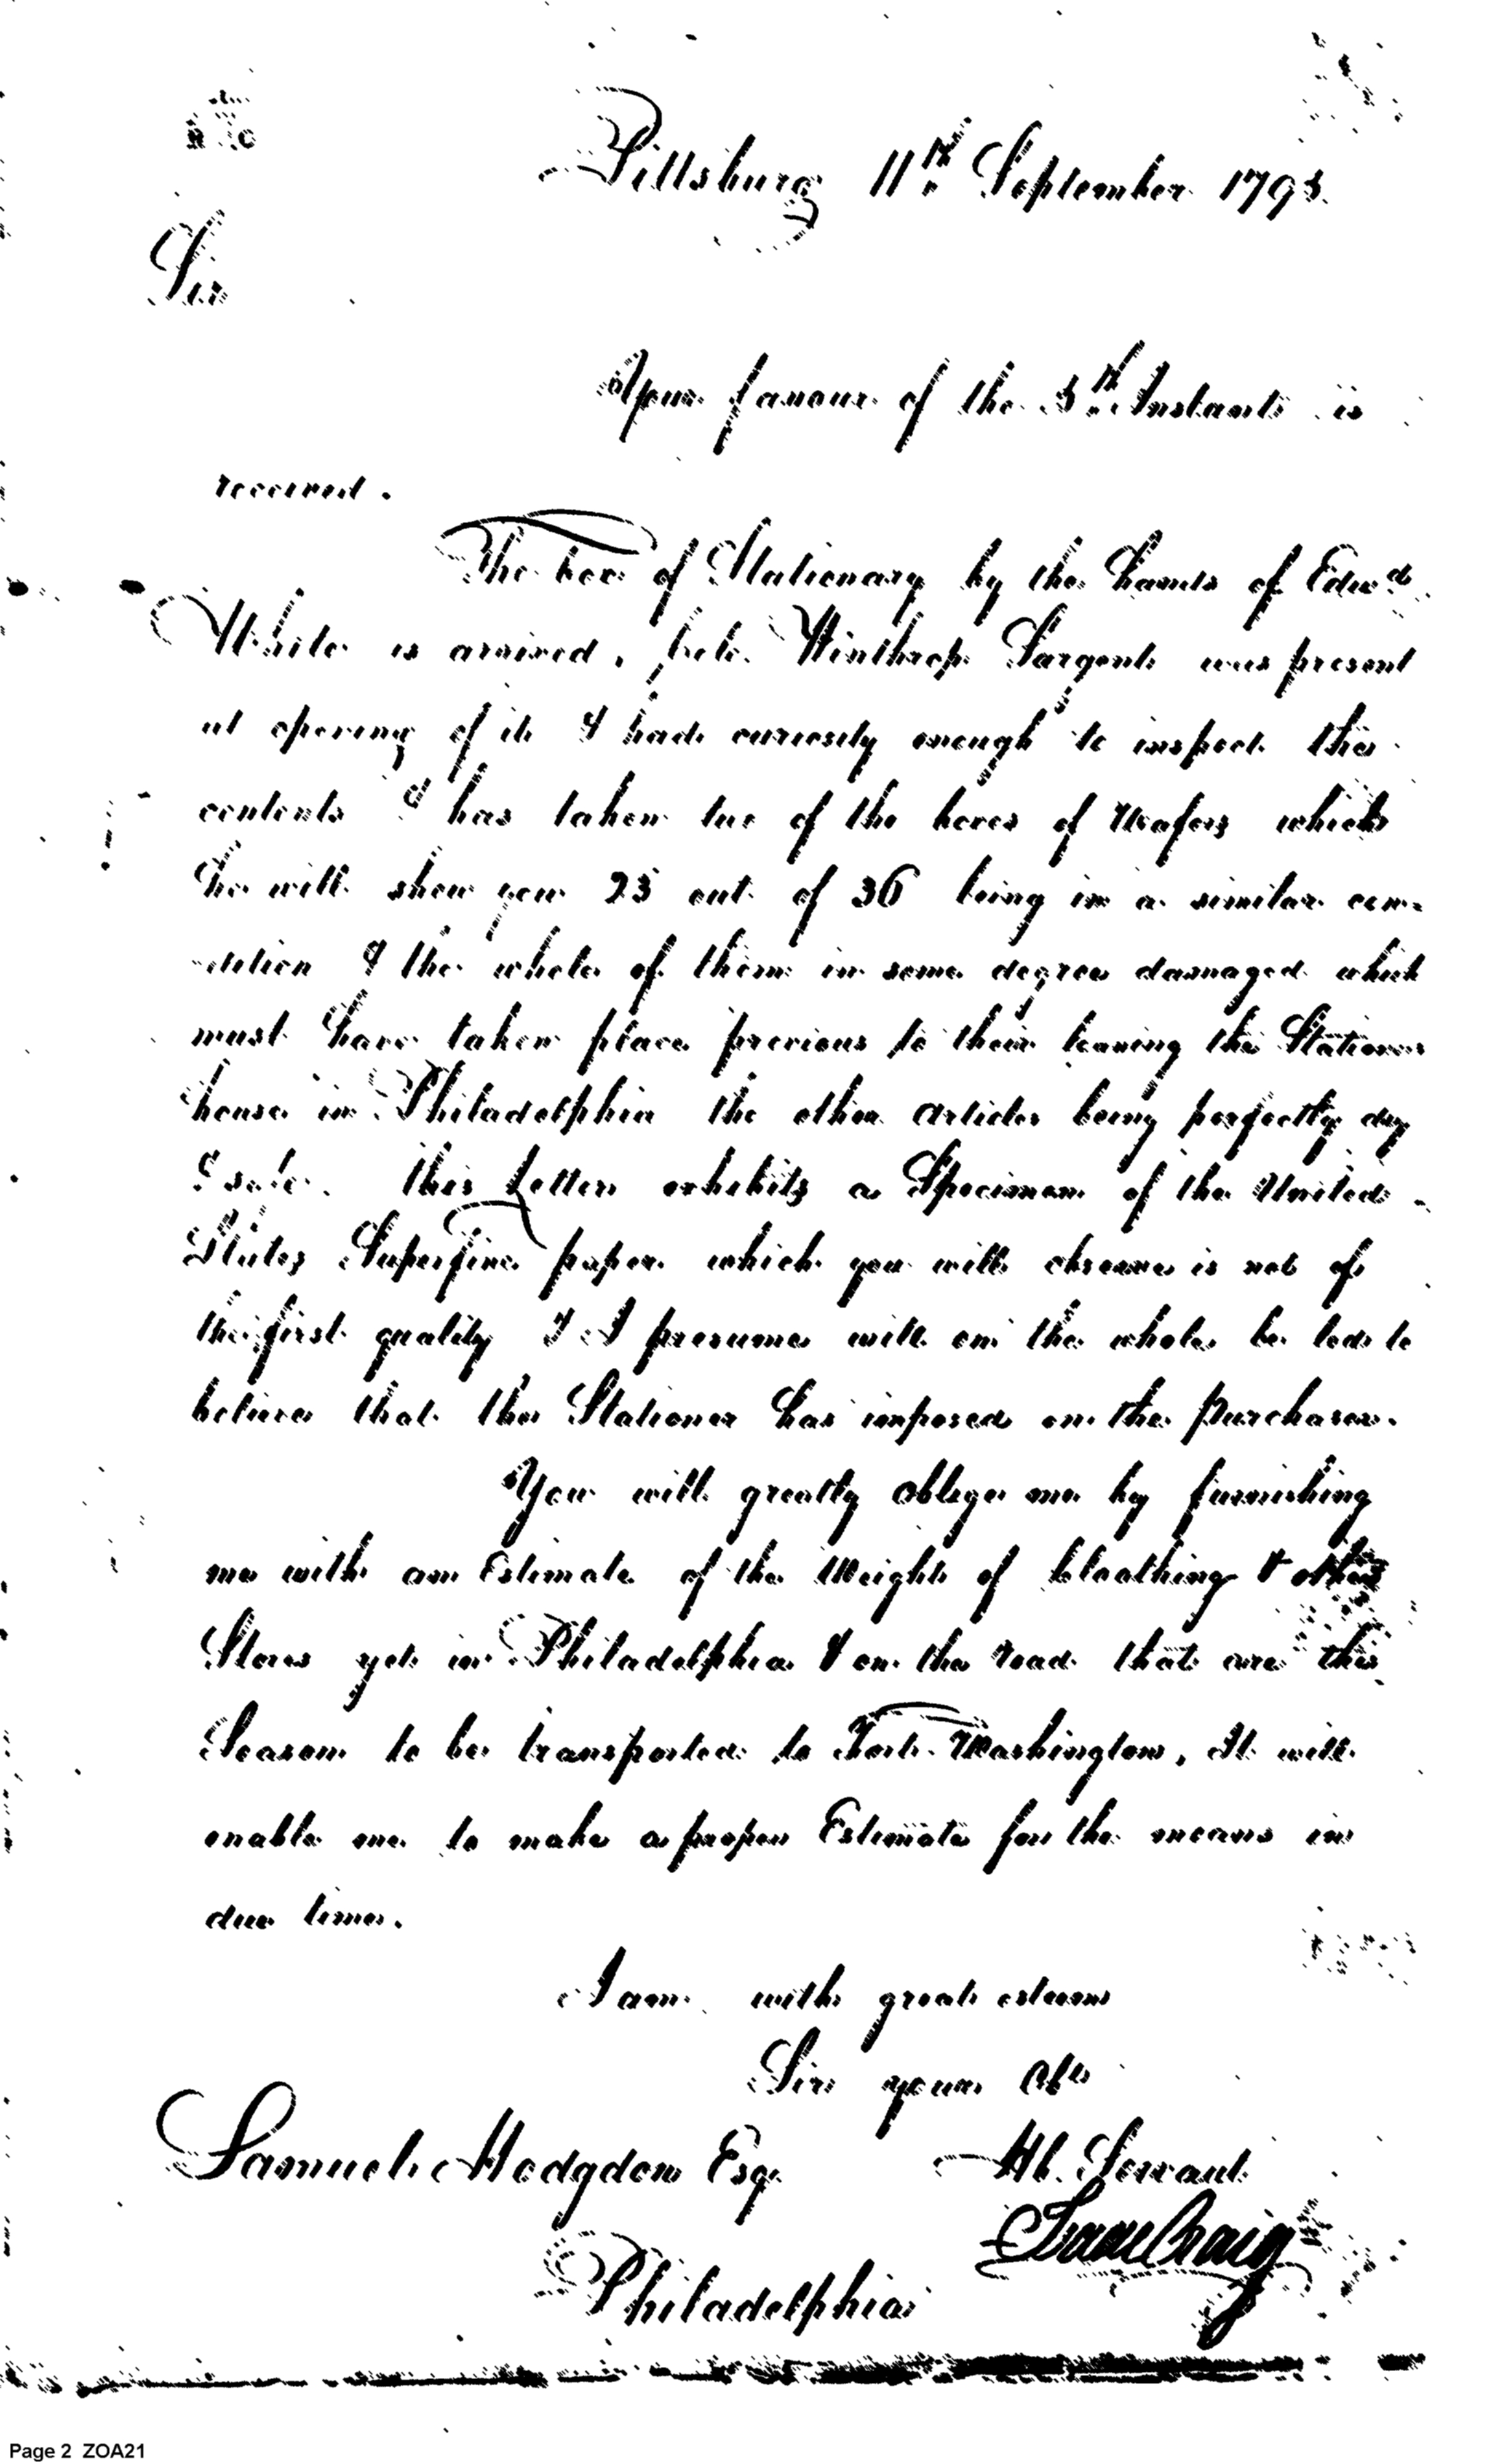 Pittsburg 11th September 1795
Sir
Your favour of the 5th Instant is
received.
The box of Stationary by the hands of Edwd
White is arrived, Colo. Winthrop Sargent was present
at opening of it & had curiosity enough to inspect the
contents & has taken two of the boxes of Wafers which
he will shew you 25 out of 36 being in a similar con=
=dition & the whole of them in some degree damaged which
must have taken place previous to their leaving the Stationers
house in Philadelphia the other articles being perfectly dry
& safe. This Letter exhibits a Specimen of the United
States Superfine paper which you will observe is not of
the first quality & I presume will on the whole be led to
believe that the Stationer has imposed on the Purchaser.
You will greatly oblige me by furnishing
me with an Estimate of the Weight of Cloathing & other
Stores yet in Philadelphia & on the road that are this
Season to be transported to Fort Washington, It will
enable me to make a proper Estimate for the means in
due time.
I am with great esteem
Sir your Obt
Samuel Hodgdon Esq. Hb. Servant
Isaac Craig
Philadelphia
Page 2 ZOA21